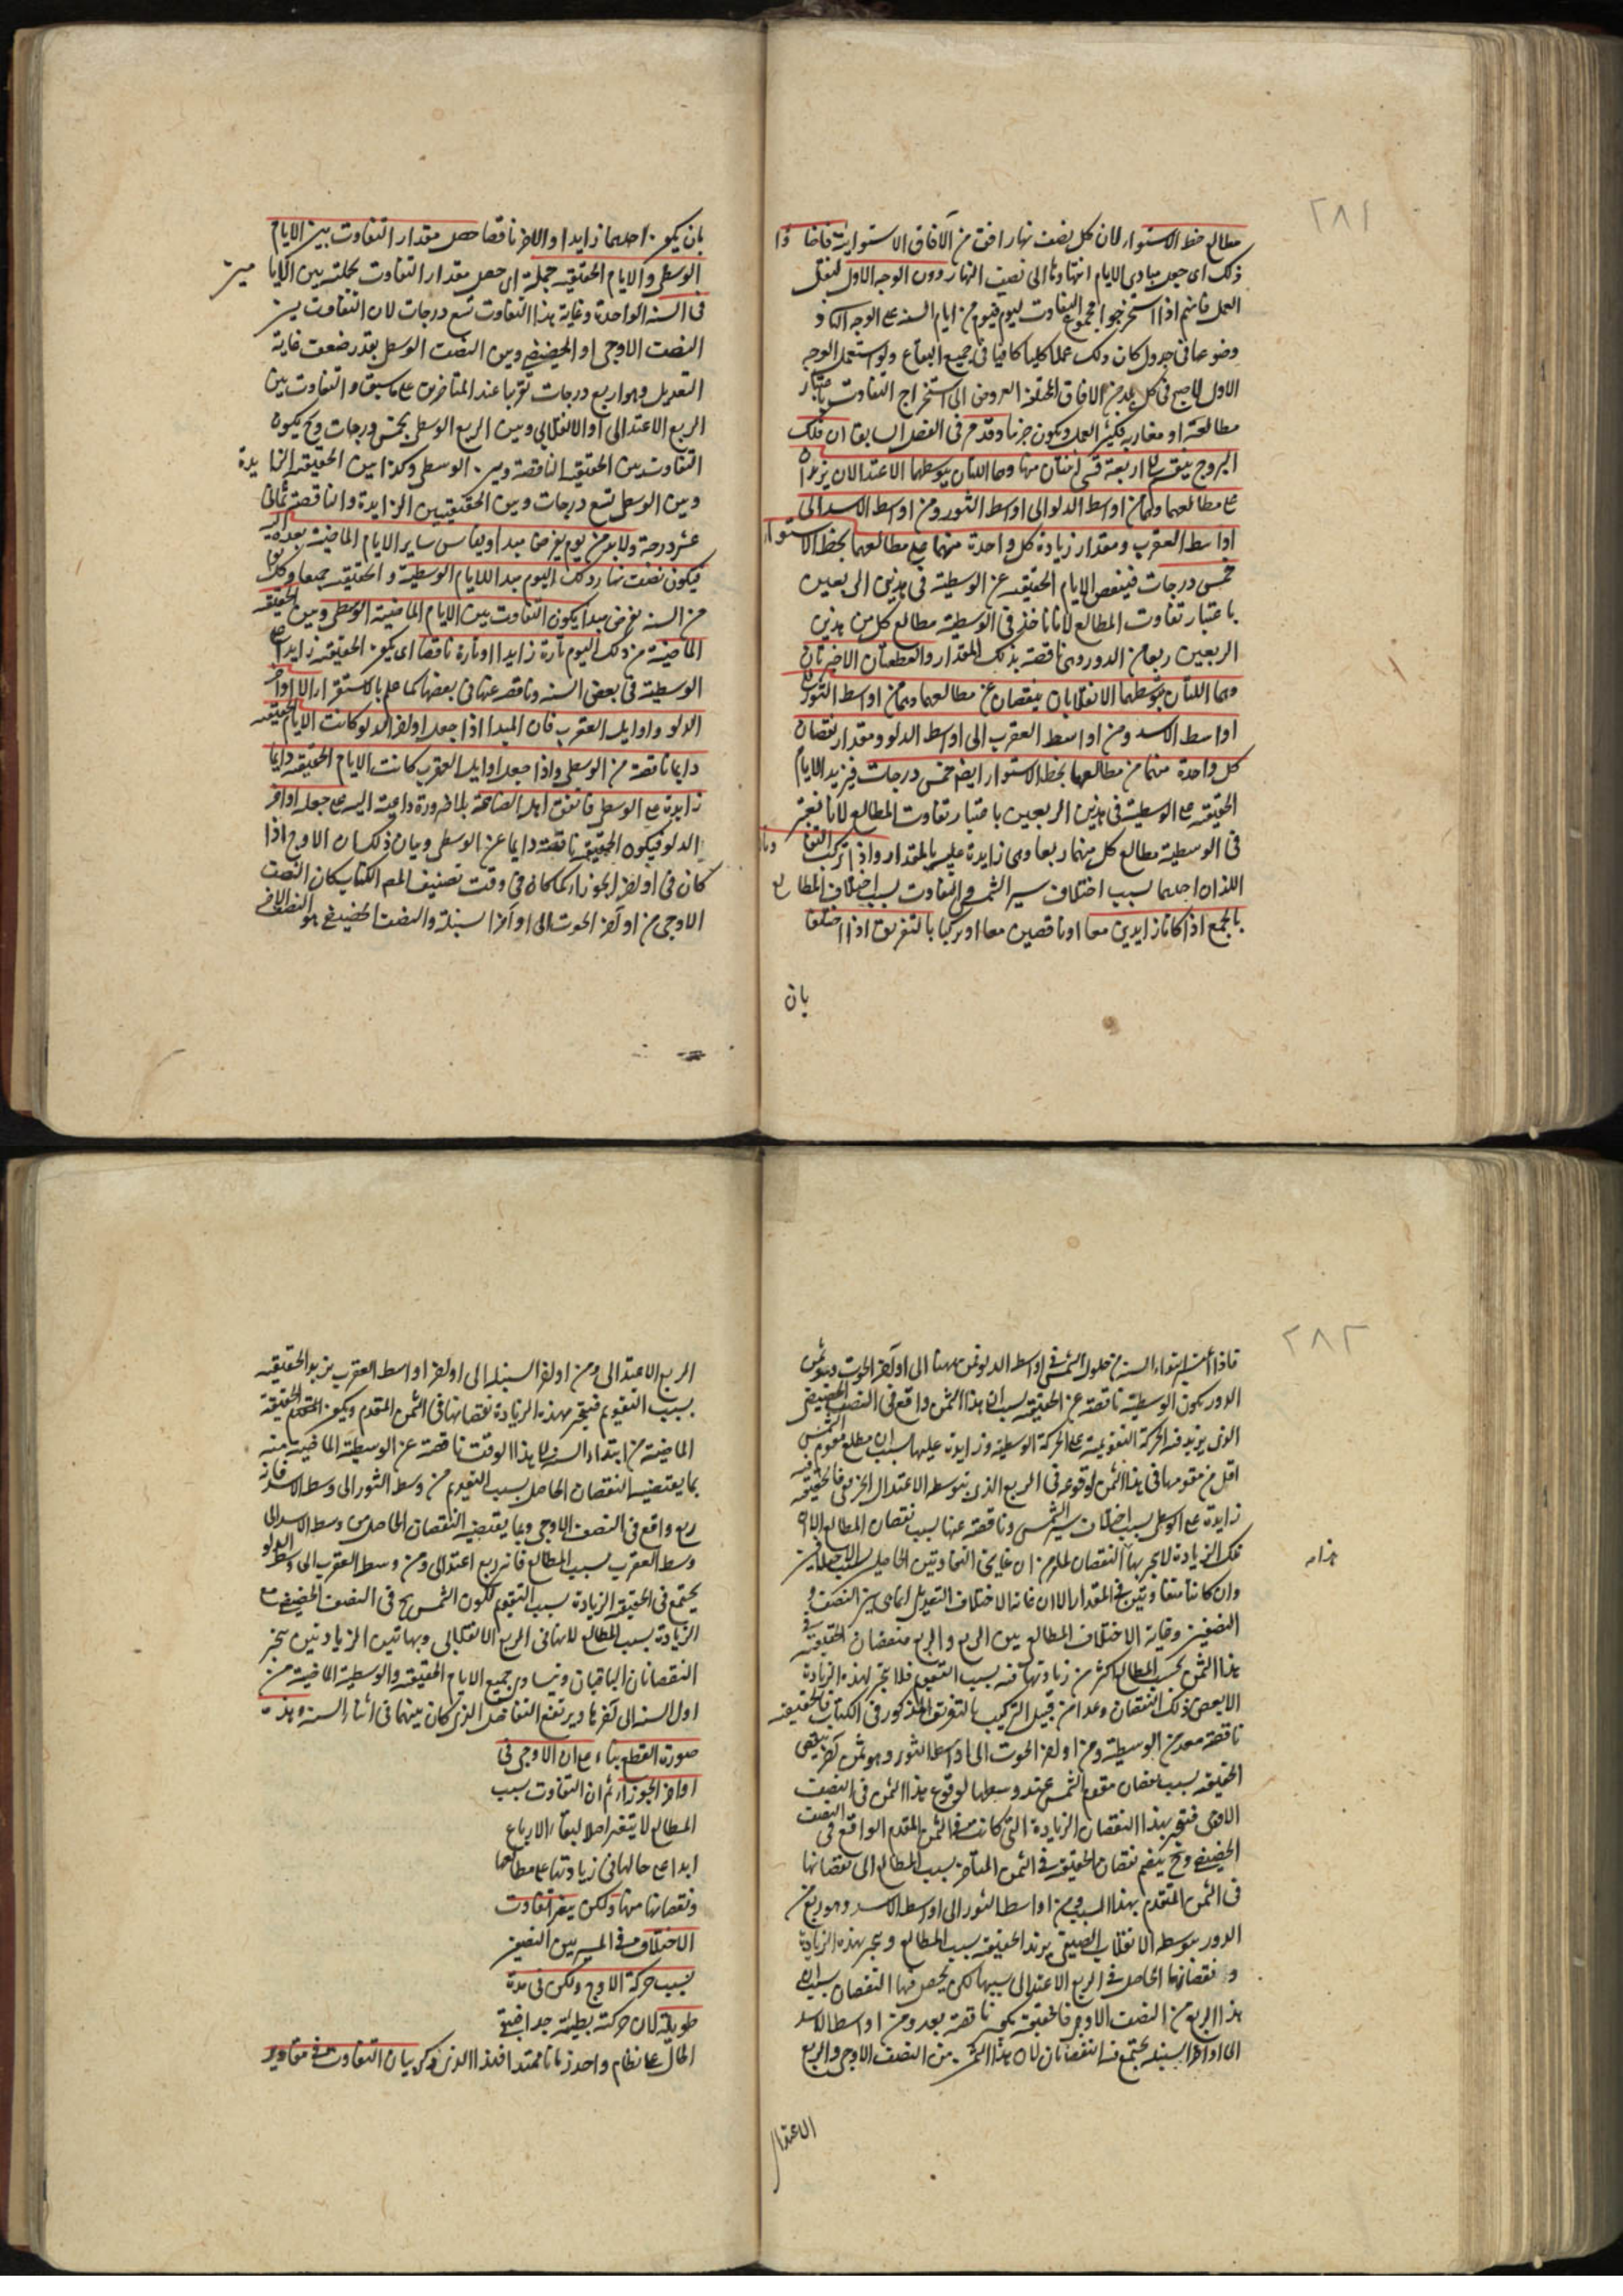 ٢٨١
مطالع خط الاستواء لان كل نصف نهار افق من الآفاق الاستوائية فاختاروا
ذلك اى جعل مبادى الايام انتهاءها الى نصف النهار دون الوجه الاول لنقل
العمل فانهم اذا استخرجوا مجموع التفاوت ليوم فيوم من ايام السنة على الوجه
وضوعا فى جدول كان ذلك عملا كليا كافيا فى جميع البقاع ولو استعمل الوجه
الاول لاحتيج فى كل بلد من الافاق المختلفة العروض الى استخراج التفاوت باعتبار
مطالعه او مغاربه فيكثر العمل ويكون جزئيا وقد مر فى الفصل السابق ان فلك
البروج ينقسم باربعة قسى اثنتان منها وهما اللتان يتوسطهما الاعتدالان يزيدان
على مطالعهما وهما من اواسط الدلو الى اواسط الثور ومن اواسط الاسد الى
اواسط العقرب ومقدار زيادة كل واحدة منهما على مطالعهما بخط الاستواء
خمس درجات فينقص الايام الحقيقية عن الوسطية فى هذين الربعين
باعتبار تفاوت المطالع لانا ناخذ فى الوسطية مطالع كل من هذين
الربعين ربعا من الدور وهى ناقصة بذلك المقدار والقطعتان الاخريان
وهما اللتان يتوسطهما الانقلابان ينقصان عن مطالعهما وهما من اواسط الثور الى
اواسط الاسد ومن اواسط العقرب الى اواسط الدلو ومقدار نقصان
كل واحدة منهما من مطالعهما بخط الاستواء ايضا خمس درجات فيزيد الايام
الحقيقية على الوسطية فى هذين الربعين باعتبار تفاوت المطالع لانا نعتبر
فى الوسطية مطالع كل منهما ربعا وهى زايدة عليه بالمقدار واذا تركب التفاوتان
اللذان احدهما بسبب اختلاف سير الشمس والتفاوت بسبب اختلاف المطالع
بالجمع اذا كانا زايدين معا او ناقصين معا او تركبا بالتفريق اذا اختلفا
بان
بان يكون احدهما زايدا والاخر ناقصا حصل مقدار التفاوت بين الايام
الوسطى والايام الحقيقية جملة اى حصل مقدار التفاوت بجملته بين الايام
فى السنة الواحدة وغاية هذا التفاوت تسع درجات لان التفاوت بين
النصف الاوجى او الحضيضى وبين النصف الوسطى بقدر ضعف غاية
التعديل وهو اربع درجات تقريبا عند المتأخرين على ما سبق والتفاوت بين
الربع الاعتدالى او الانقلابى وبين الربع الوسطى بخمس درجات وح يكون
التفاوت بين الحقيقية الناقصة وبين الوسطى وكذا بين الحقيقية الزايدة
وبين الوسطى تسع درجات وبين الحقيقيتين الزايدة والناقصة ثمانى
عشر درجة ولا بد من يوم يفرض مبدا ويقاس ساير الايام الماضية بعده اليه
فيكون نصف نهار ذلك اليوم مبدا للايام الوسطية والحقيقية جميعا وكل يوم
من السنة يفرض مبدا يكون التفاوت بين الايام الماضية الوسطى وبين الحقيقية
الماضية من ذلك اليوم تارة زايدا او تارة ناقصا اى يكون الحقيقية زايدا على
الوسطية فى بعض السنة وناقصة عنها فى بعضها كما علم بالاستقراء الا اواخر
الدلو واوايل العقرب فان المبدا اذا جعل اواخر الدلو كانت الايام الحقيقية
دايما ناقصة من الوسطى واذا جعل اوايل العقرب كانت الايام الحقيقية دايما
زايدة على الوسطى فاتفق اهل الصناعة بلا ضرورة داعية اليه على جعله اواخر
الدلو فيكون الحقيقية ناقصة دايما عن الوسطى وبيان ذلك ان الاوج اذا
كان فى اواخر الجوزاء كما كان فى وقت تصنيف المص الكتاب كان النصف
الاوجى من اواخر الحوت الى اواخر السنبلة والنصف الحضيضى هو النصف الاخر
٢٨٢
فاذا أخذ ابتداء السنة من حلول الشمس فى اواسط الدلو فمن هنا الى اواخر الحوت وهو ثمن
الدور يكون الوسطية ناقصة عن الحقيقية بسبب ان هذا الثمن واقع فى النصف الحضيضى
الذى يزيد فيه الحركة التقويمية على الحركة الوسطية وزايدة عليها بسبب ان مطلع مقوم الشمس
اقل من مقومها فى هذا الثمن لوقوعه فى الربع الذى يتوسطه الاعتدال الربيعى فالحقيقية فيه
زايدة على الوسطى بسبب اختلاف سير الشمس وناقصة عنها بسبب نقصان المطالع الا ان
تلك الزيادة لا يجبر بها النقصان لما مر من ان غايتى التفاوتين الحاصلين بسبب الاختلافين
وان كانتا متفاوتتين فى المقدار الا ان غاية الاختلاف التعديلى انما هى بين النصف و
النصفين وغاية الاختلاف المطالع بين الربع والربع فنقصان الحقيقية فى
هذا الثمن بحسب المطالع اكثر من زيادتها فيه بسبب التقويم فلا يجبر لهذه الزيادة
الا بعض ذلك النقصان وهذا من قبيل التركيب بالتفريق المذكور فى الكتاب فالحقيقية
ناقصة بعد من الوسطية ومن اواخر الحوت الى اواسط الثور وهو ثمن آخر ينقص
الحقيقية بسبب نقصان مقوم الشمس عن وسطها لوقوع هذا الثمن فى النصف
الاوجى فينجبر بهذا النقصان الزيادة التى كانت فى الثمن المتقدم الواقع فى النصف
الحضيضى وح ينضم نقصان الحقيقية فى الثمن المتأخر بسبب المطالع الى نقصانها
فى الثمن المتقدم بهذا السبب ومن اواسط الثور الى اواسط الاسد وهو ربع من
الدور يتوسطه الانقلاب الصيفى يزيد الحقيقية بسبب المطالع ويجبر بهذه الزيادة
نقصانها الحاصل فى الربع الاعتدالى بسببها لكن يحصل فيها النقصان بسبب ان
هذا الربع من النصف الاوجى فالحقيقية يكون ناقصة بعد ومن اواسط الاسد
الى اواخر السنبلة يجتمع فيه النقصانان لان هذا الثمن من النصف الاوجى والربع
الاعتدال
الربع الاعتدالى ومن اواخر السنبلة الى اواخر اواسط العقرب يزيد الحقيقية
بسبب التقويم فينجبر بهذه الزيادة نقصانها فى الثمن المتقدم ويكون الحقيقية
الماضية من ابتداء السنة الى هذا الوقت ناقصة عن الوسطية الماضية منه
بما يقتضيه النقصان الحاصل بسبب التقويم من وسط الثور الى وسط الاسد فانه
ربع واقع فى النصف الاوجى وبما يقتضيه النقصان الحاصل من وسط الاسد الى
وسط العقرب بسبب المطالع فانه ربع اعتدالى ومن وسط العقرب الى وسط الدلو
يجتمع فى الحقيقية الزيادة بسبب التقويم لكون الشمس ح فى النصف الحضيضى مع
الزيادة بسبب المطالع لانها فى الربع الانقلابى وبهاتين الزيادتين ينجبر
النقصانان الباقيان ويتساوى جميع الايام الحقيقية والوسطية الماضية من
اول السنة الى آخرها ويرتفع التفاضل الذى كان بينهما فى اثناء السنة وهذه
صورة القطع بناء على ان الاوج فى
اواخر الجوزاء ثم ان التفاوت بسبب
المطالع لا يتغير اصلا لبقاء الارباع
ابدا على حالها فى زيادتها على مطالعها
ونقصانها منها ولكن يتغير التفاوت
الاختلاف فى المسير بين النصفين
بسبب حركة الاوج ولكن فى مدة
طويلة لان حركته بطيئة جدا فيبقى
الحال على نظام واحد زمانا ممتدا فهذا الذى ذكر بيان التفاوت فى مقادير